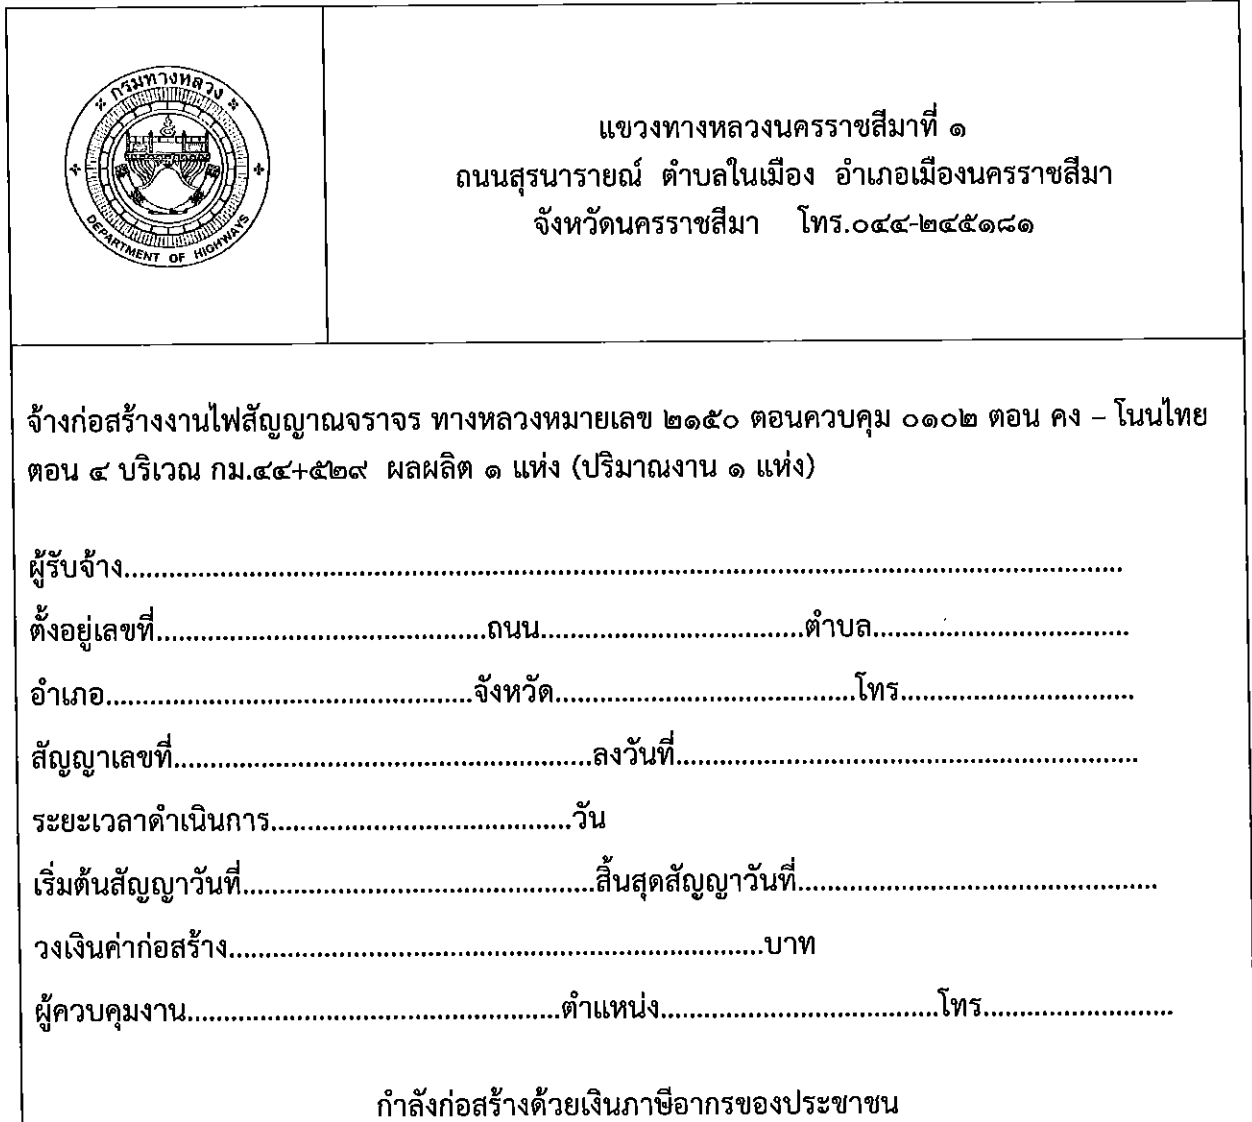 กรมทางหลวง
DEPARTMENT OF HIGHWAYS
แขวงทางหลวงนครราชสีมาที่ ๑
ถนนสุรนารายณ์ ตำบลในเมือง อำเภอเมืองนครราชสีมา
จังหวัดนครราชสีมา โทร.๐๔๔-๒๔๕๑๘๑
จ้างก่อสร้างงานไฟสัญญาณจราจร ทางหลวงหมายเลข ๒๑๕๐ ตอนควบคุม ๐๑๐๒ ตอน คง – โนนไทย
ตอน ๔ บริเวณ กม.๔๔+๕๒๙ ผลผลิต ๑ แห่ง (ปริมาณงาน ๑ แห่ง)
ผู้รับจ้าง..........................................................................
ตั้งอยู่เลขที่..............................ถนน..............................ตำบล..............................
อำเภอ..............................จังหวัด..............................โทร..............................
สัญญาเลขที่..............................ลงวันที่..............................
ระยะเวลาดำเนินการ..............................วัน
เริ่มต้นสัญญาวันที่..............................สิ้นสุดสัญญาวันที่..............................
วงเงินค่าก่อสร้าง..............................บาท
ผู้ควบคุมงาน..............................ตำแหน่ง..............................โทร..............................
กำลังก่อสร้างด้วยเงินภาษีอากรของประขาชน